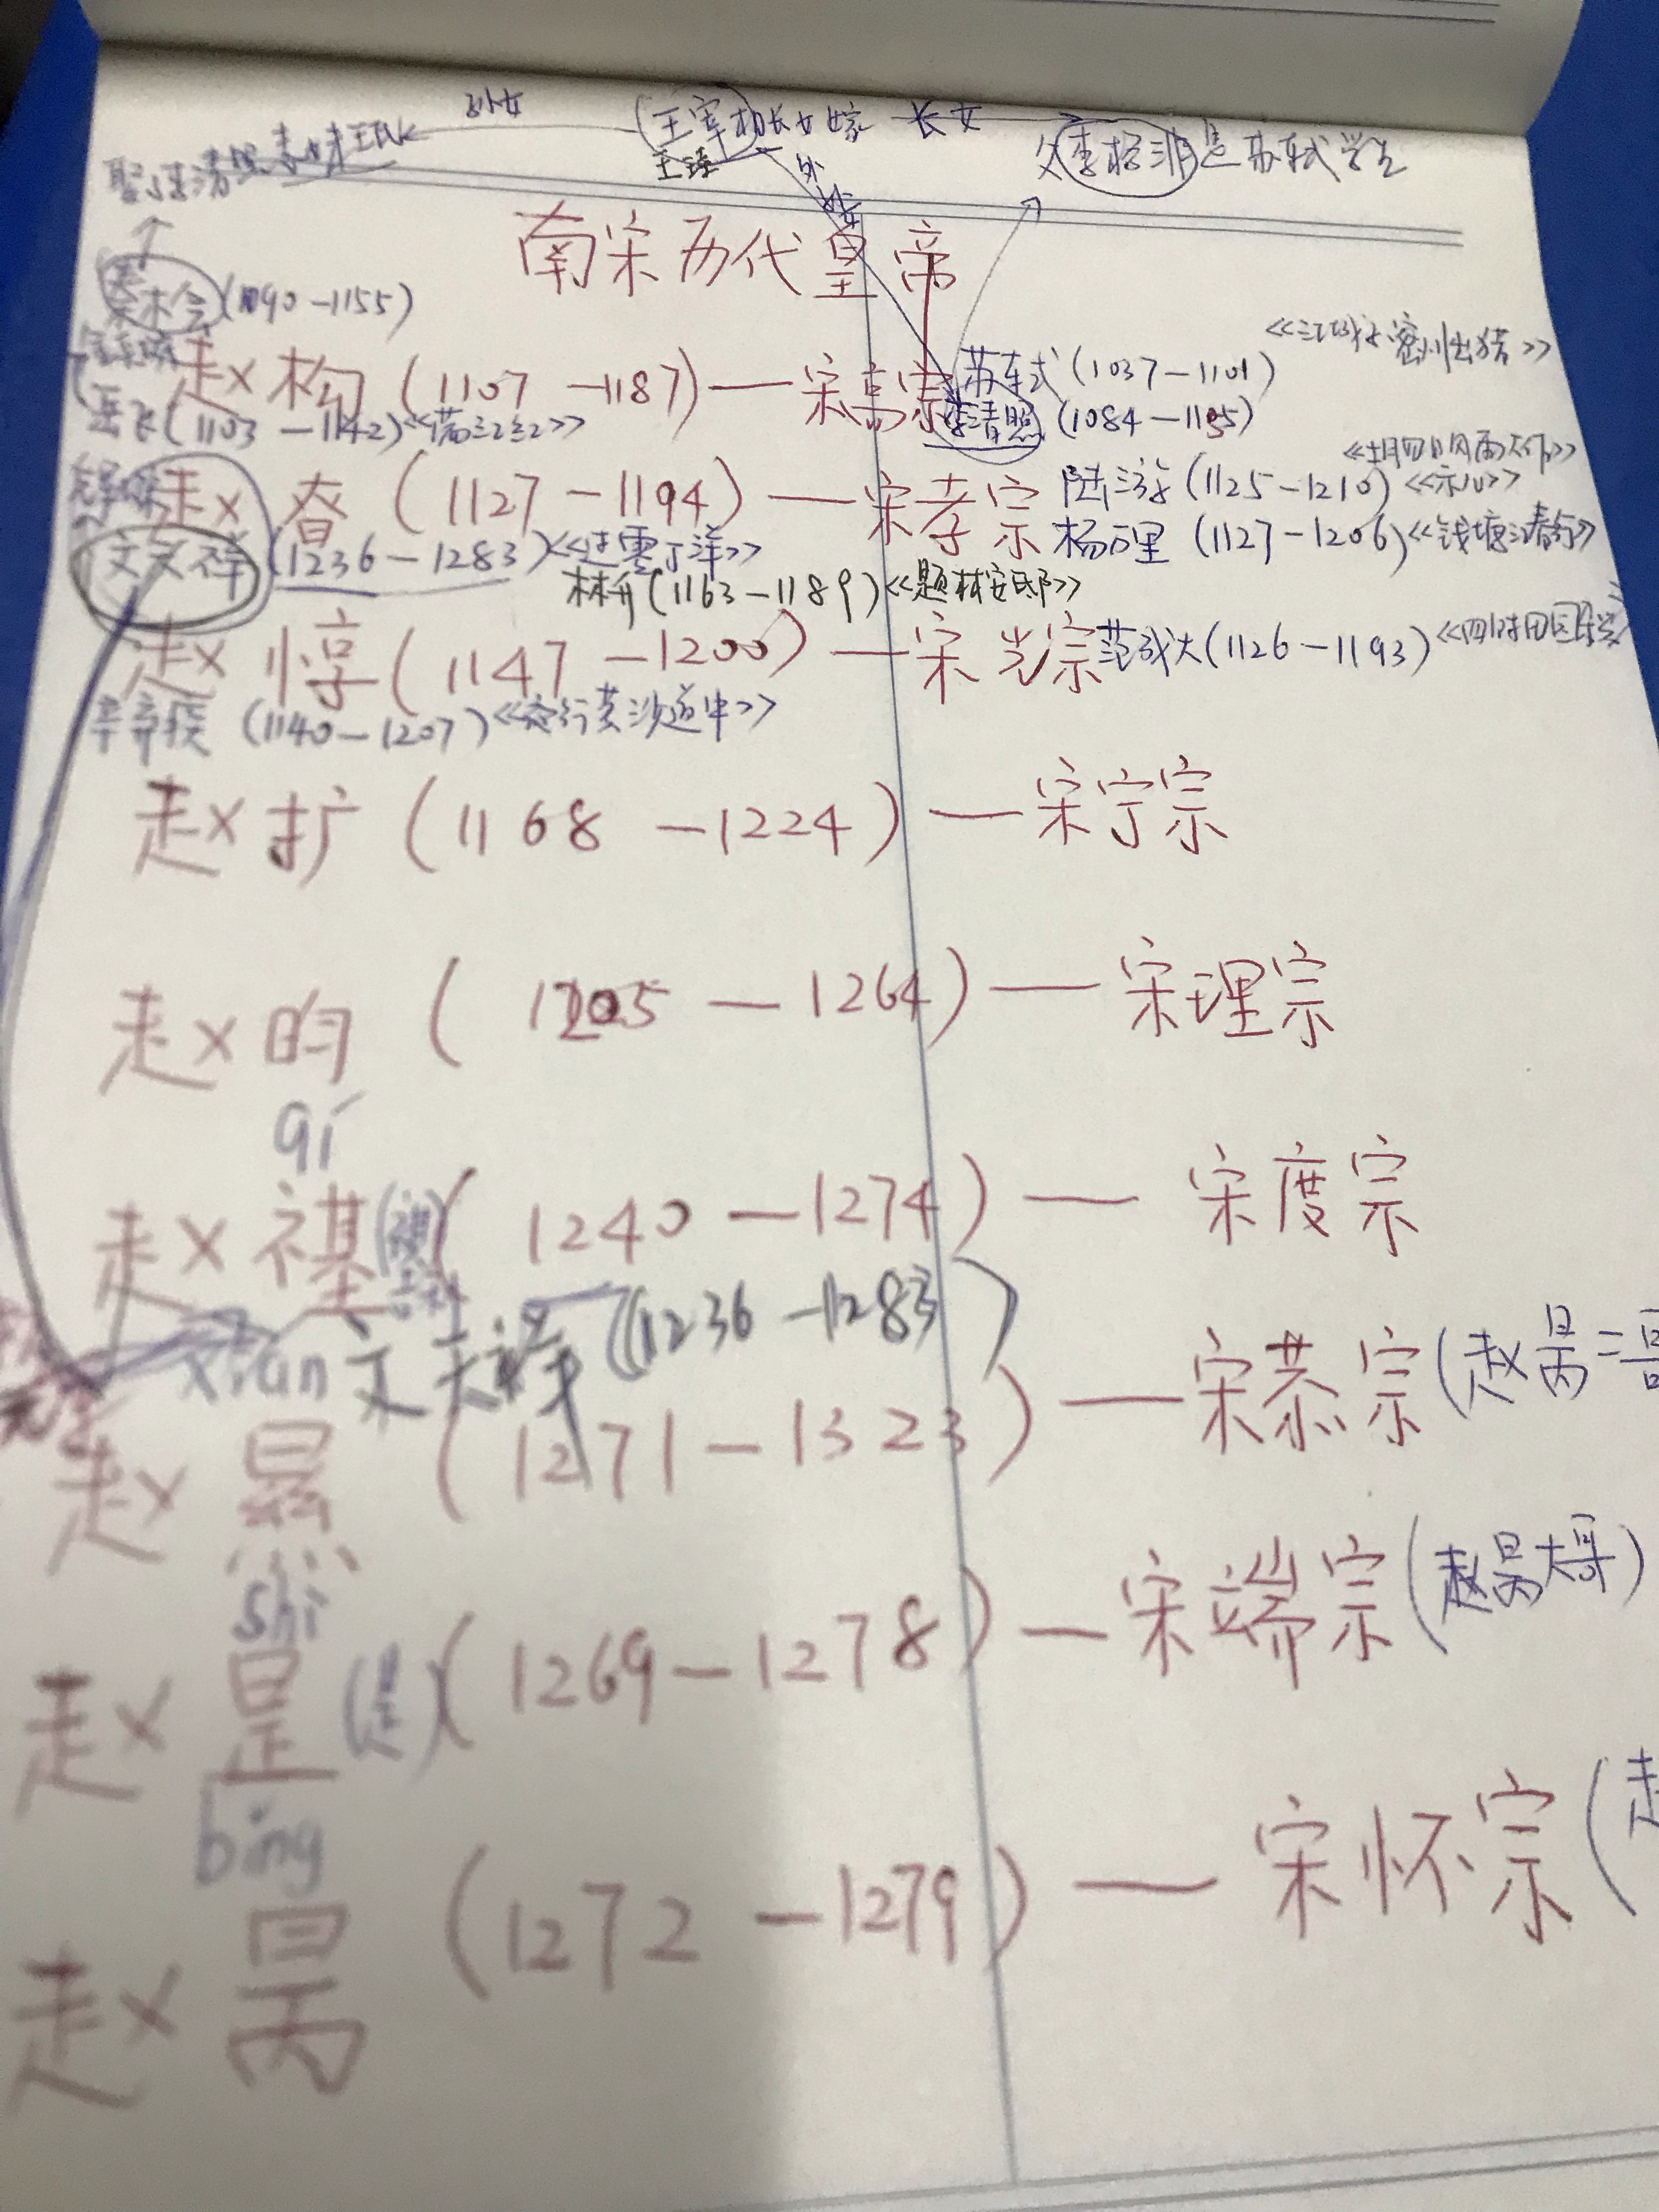 孙女 王宰相长女嫁 长女
王珪
外孙女
父李格非是苏轼学生
南宋历代皇帝
秦桧(1090-1155)
赵构(1107-1187)—宋高宗
苏轼(1037-1101)
<<江城子密州出猎>>
岳飞(1103-1142)<<满江红>>
李清照(1084-1155)
赵昚(1127-1194)—宋孝宗
陆游(1125-1210)<<示儿>>
文天祥(1236-1283)<<过零丁洋>>
杨万里(1127-1206)
林升(1163-1189)<<题林安邸>>
赵惇(1147-1200)—宋光宗
范成大(1126-1193)<<四时田园
辛弃疾(1140-1207)<<夜行黄沙道中>>
赵扩(1168-1224)—宋宁宗
赵昀(1205-1264)—宋理宗
qí
赵禥(1240-1274)—宋度宗
xian 文天祥(1236-1283)
赵㬎(1271-1323)—宋恭宗(赵昺二哥
shì
赵昰(是)(1269-1278)—宋端宗(赵昺大哥)
bǐng
赵昺(1272-1279)—宋怀宗(赵